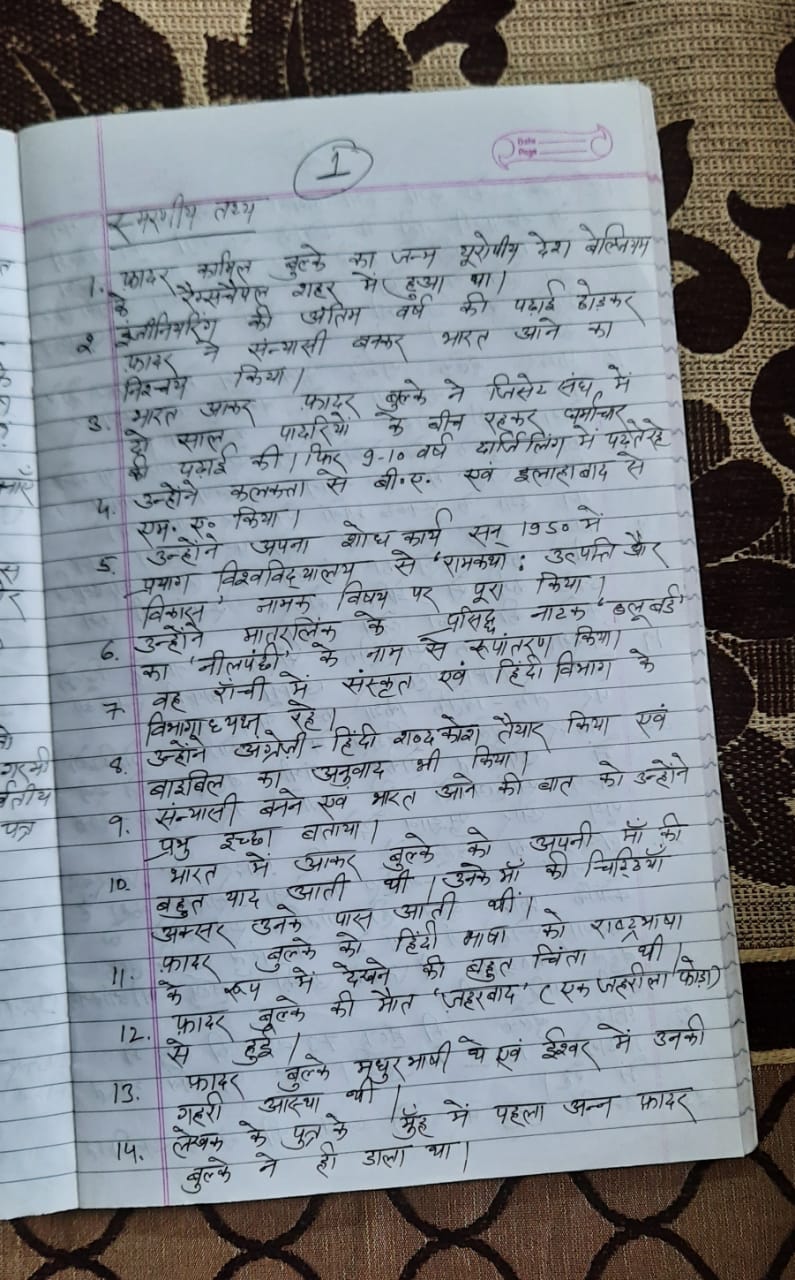 1
Date
Page
स्मरणीय तथ्य
1. फादर कामिल बुल्के का जन्म यूरोपीय देश बेल्जियम
के रैम्सचैपल शहर में हुआ था।
2 इंजीनियरिंग की अंतिम वर्ष की पढ़ाई छोड़कर
फ़ादर ने संन्यासी बनकर भारत आने का
निश्चय किया।
3. भारत आकर फ़ादर बुल्के ने जिसेट संघ में
दो साल पादरियों के बीच रहकर धर्माचार
की पढ़ाई की। फिर 9-10 वर्ष दार्जिलिंग में पढ़ते रहे
4. उन्होंने कलकत्ता से बी.ए. एवं इलाहाबाद से
एम. ए. किया।
5. उन्होंने अपना शोध कार्य सन् 1950 में
प्रयाग विश्वविद्यालय से 'रामकथा: उत्पत्ति और
विकास' नामक विषय पर पूरा किया।
6. उन्होंने मातरलिंक के प्रसिद्ध नाटक 'ब्लू बर्ड'
का 'नीलपंछी' के नाम से रूपांतरण किया।
7. वह राँची में संस्कृत एवं हिंदी विभाग के
विभागाध्यक्ष रहे।
8. उन्होंने अंग्रेज़ी-हिंदी शब्दकोश तैयार किया एवं
बाइबिल का अनुवाद भी किया।
9. संन्यासी बनने एवं भारत आने की बात को उन्होंने
प्रभु इच्छा बताया।
10. भारत में आकर बुल्के को अपनी माँ की
बहुत याद आती थी। उनके माँ की चिट्ठियाँ
अक्सर उनके पास आती थीं।
11. फ़ादर बुल्के को हिंदी भाषा को राष्ट्रभाषा
के रूप में देखने की बहुत चिंता थी।
12. फ़ादर बुल्के की मौत 'ज़हरबाद' (एक जहरीला फोड़ा)
से हुई।
13. फ़ादर बुल्के मधुरभाषी थे एवं ईश्वर में उनकी
गहरी आस्था थी।
14. लेखक के पुत्र के मुँह में पहला अन्न फ़ादर
बुल्के ने ही डाला था।